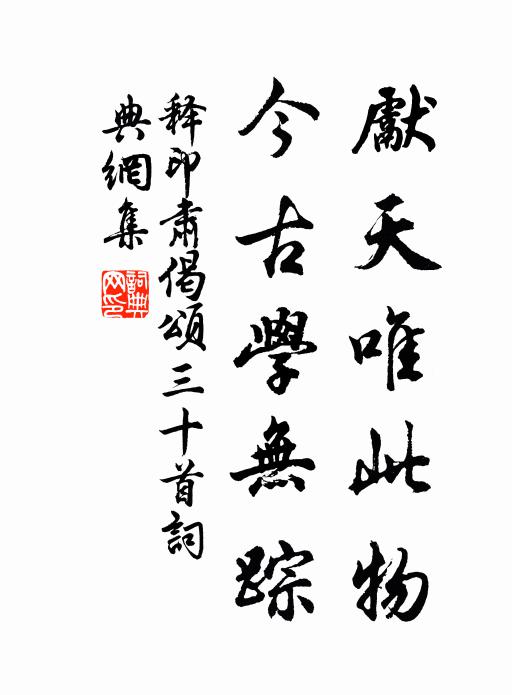 獻天唯此物
今古學無踪
释印肅偈頌三十首詞
典網集
詞典網印